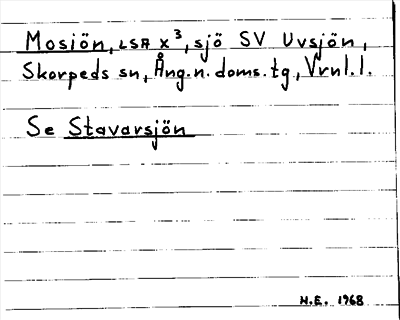 Mosjön, LSA x³, sjö SV Uvsjön,
Skorpeds sn, Ång.n.doms.tg., Vrnl.l.
Se Stavarsjön
H.E. 1968